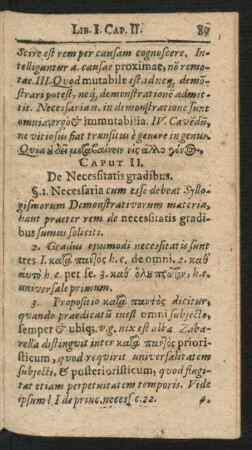 LIB. I. CAP. II. 89
Scire est rem per causam cognoscere. In-
telliguntur a. causae proximae, nō remo-
tae. III. Quod mutabile est, id neq; demō-
strari potest, neq; demonstrationē admit-
tit. Necessaria n. in demonstratione sunt
omnia, ergò & immutabilia. IV. Cavēdū,
ne vitiosus fiat transitus è genere in genus.
CAPUT II.
De Necessitatis gradibus.
§. 1. Necessaria cum esse debeat Syllo-
gismorum Demonstrativorum materia,
haut praeter rem de necessitatis gradi-
bus sumus soliciti.
2. Gradus ejusmodi necessitatis sunt
tres I. κατὰ παντὸς h.e. de omni. 2. καθ'
αυτὸ h.e. per se. 3. καθ' ὅλου πρῶτον, h.e.
universale primum.
3. Propositio κατὰ παντὸς dicitur,
quando praedicatū inest omni subjecto,
semper & ubiq; v.g. nix est alba. Zaba-
rella distinguit inter κατὰ παντὸς priori-
sticum, quod requirit universalitatem
subjecti, & posterioristicum, quod flagi-
tat etiam perpetuitatem temporis. Vide
ipsum l. I de princ. necess. c. 22.